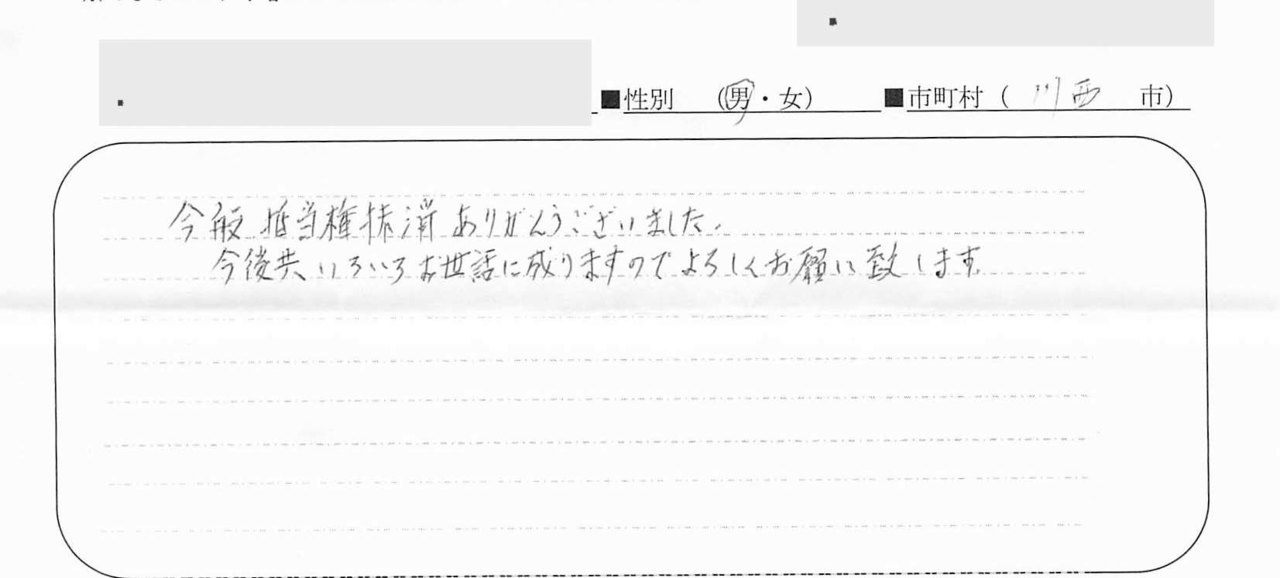 ■性別 (男・女) ■市町村 ( 川西 市)
今般 抵当権抹消 ありがとうございました.
今後共、いろいろお世話に成りますのでよろしくお願い致します.